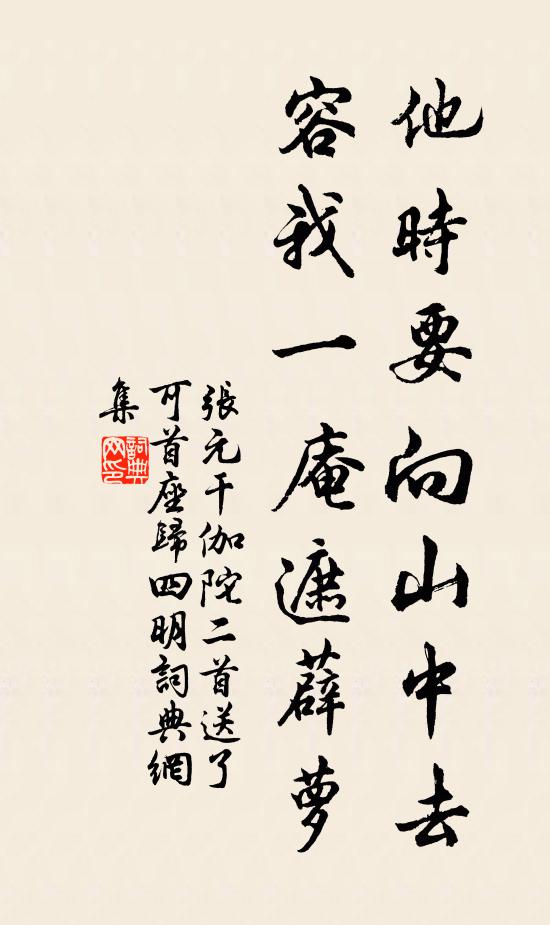 他時要向山中去
容我一庵遮薜蘿
張元干伽陀二首送了
可首座歸四明詞典網
集
詞典
网印